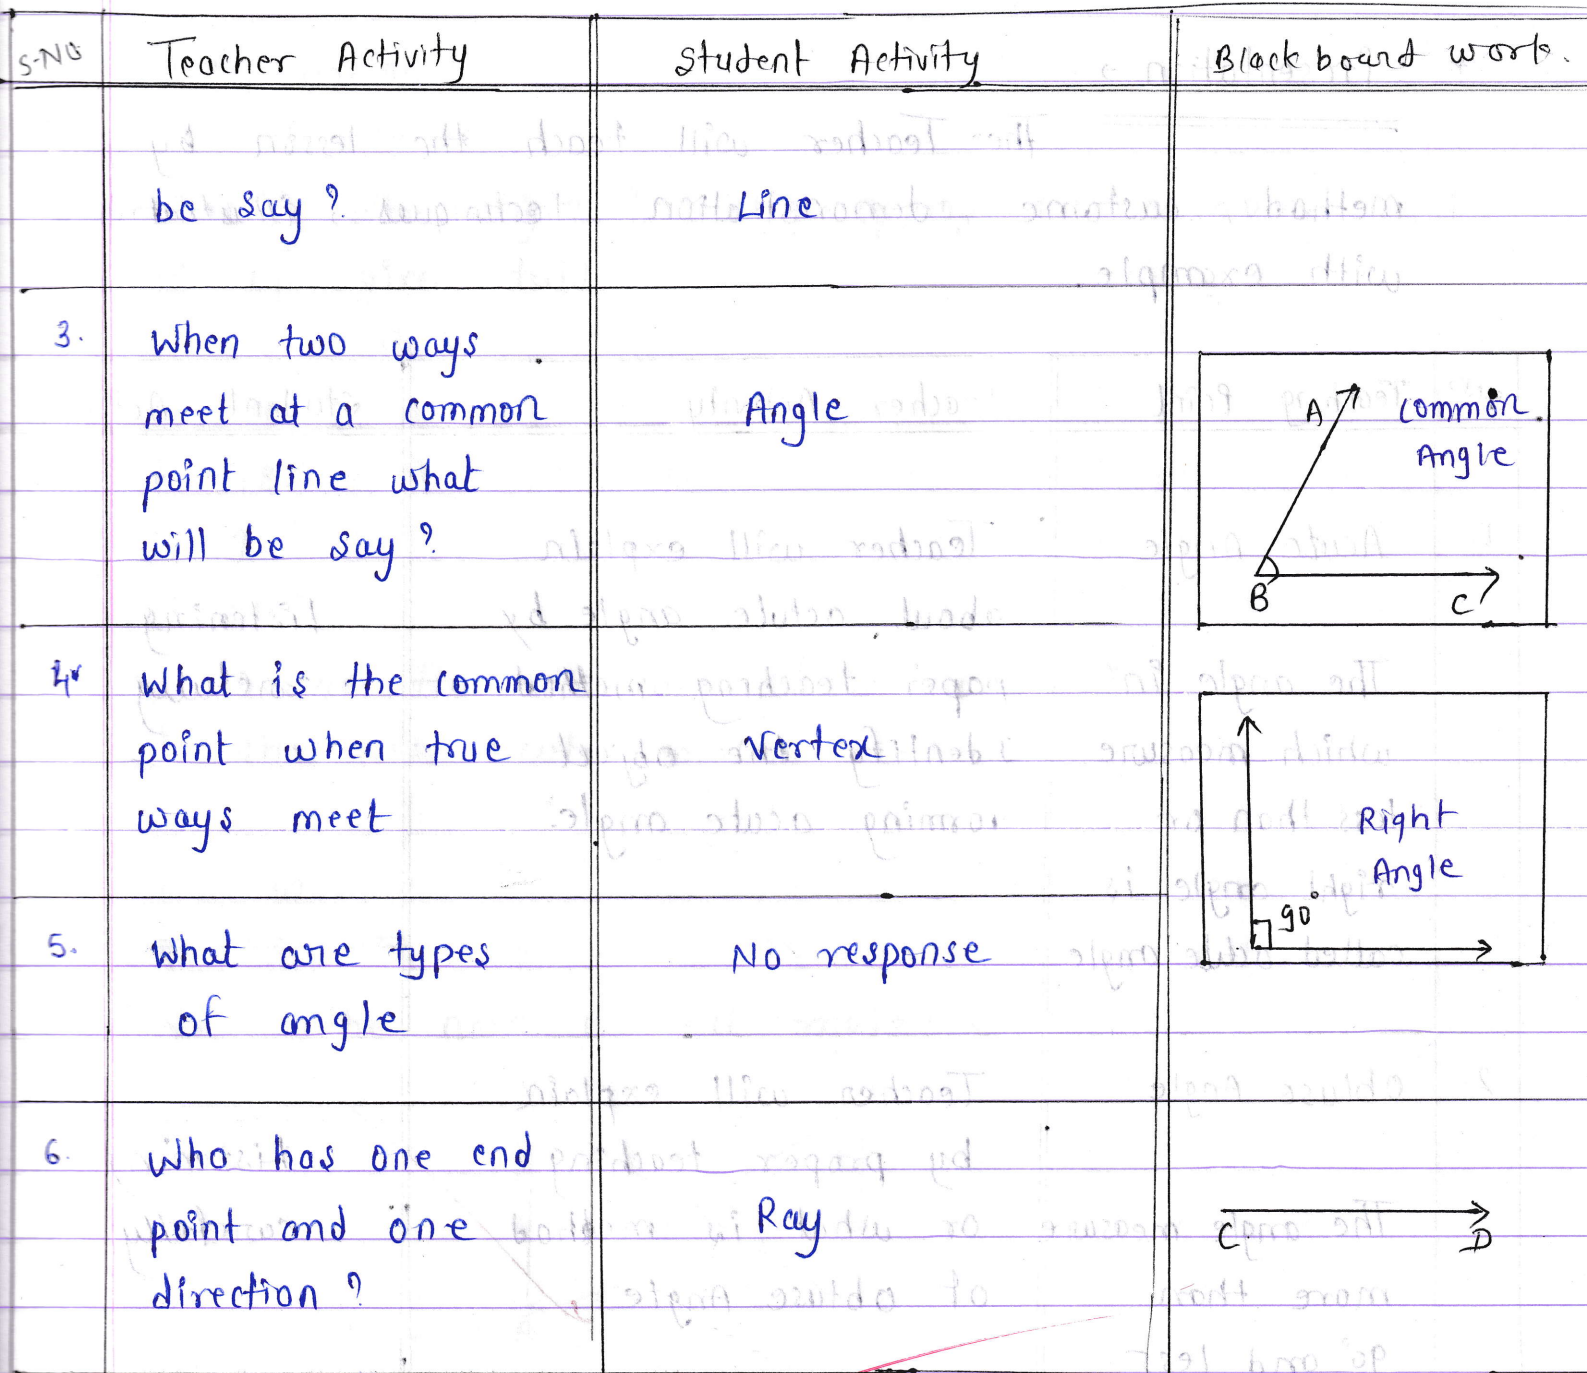 S.NO Teacher Activity Student Activity Black board work.
be say ? Line
3. When two ways
meet at a common Angle
point line what
will be say ?
A Common
Angle
B C
4. What is the common
point when true Vertex
ways meet
Right
Angle
90°
5. What are types No response
of angle
6. Who has one end
point and one Ray
direction ?
C D